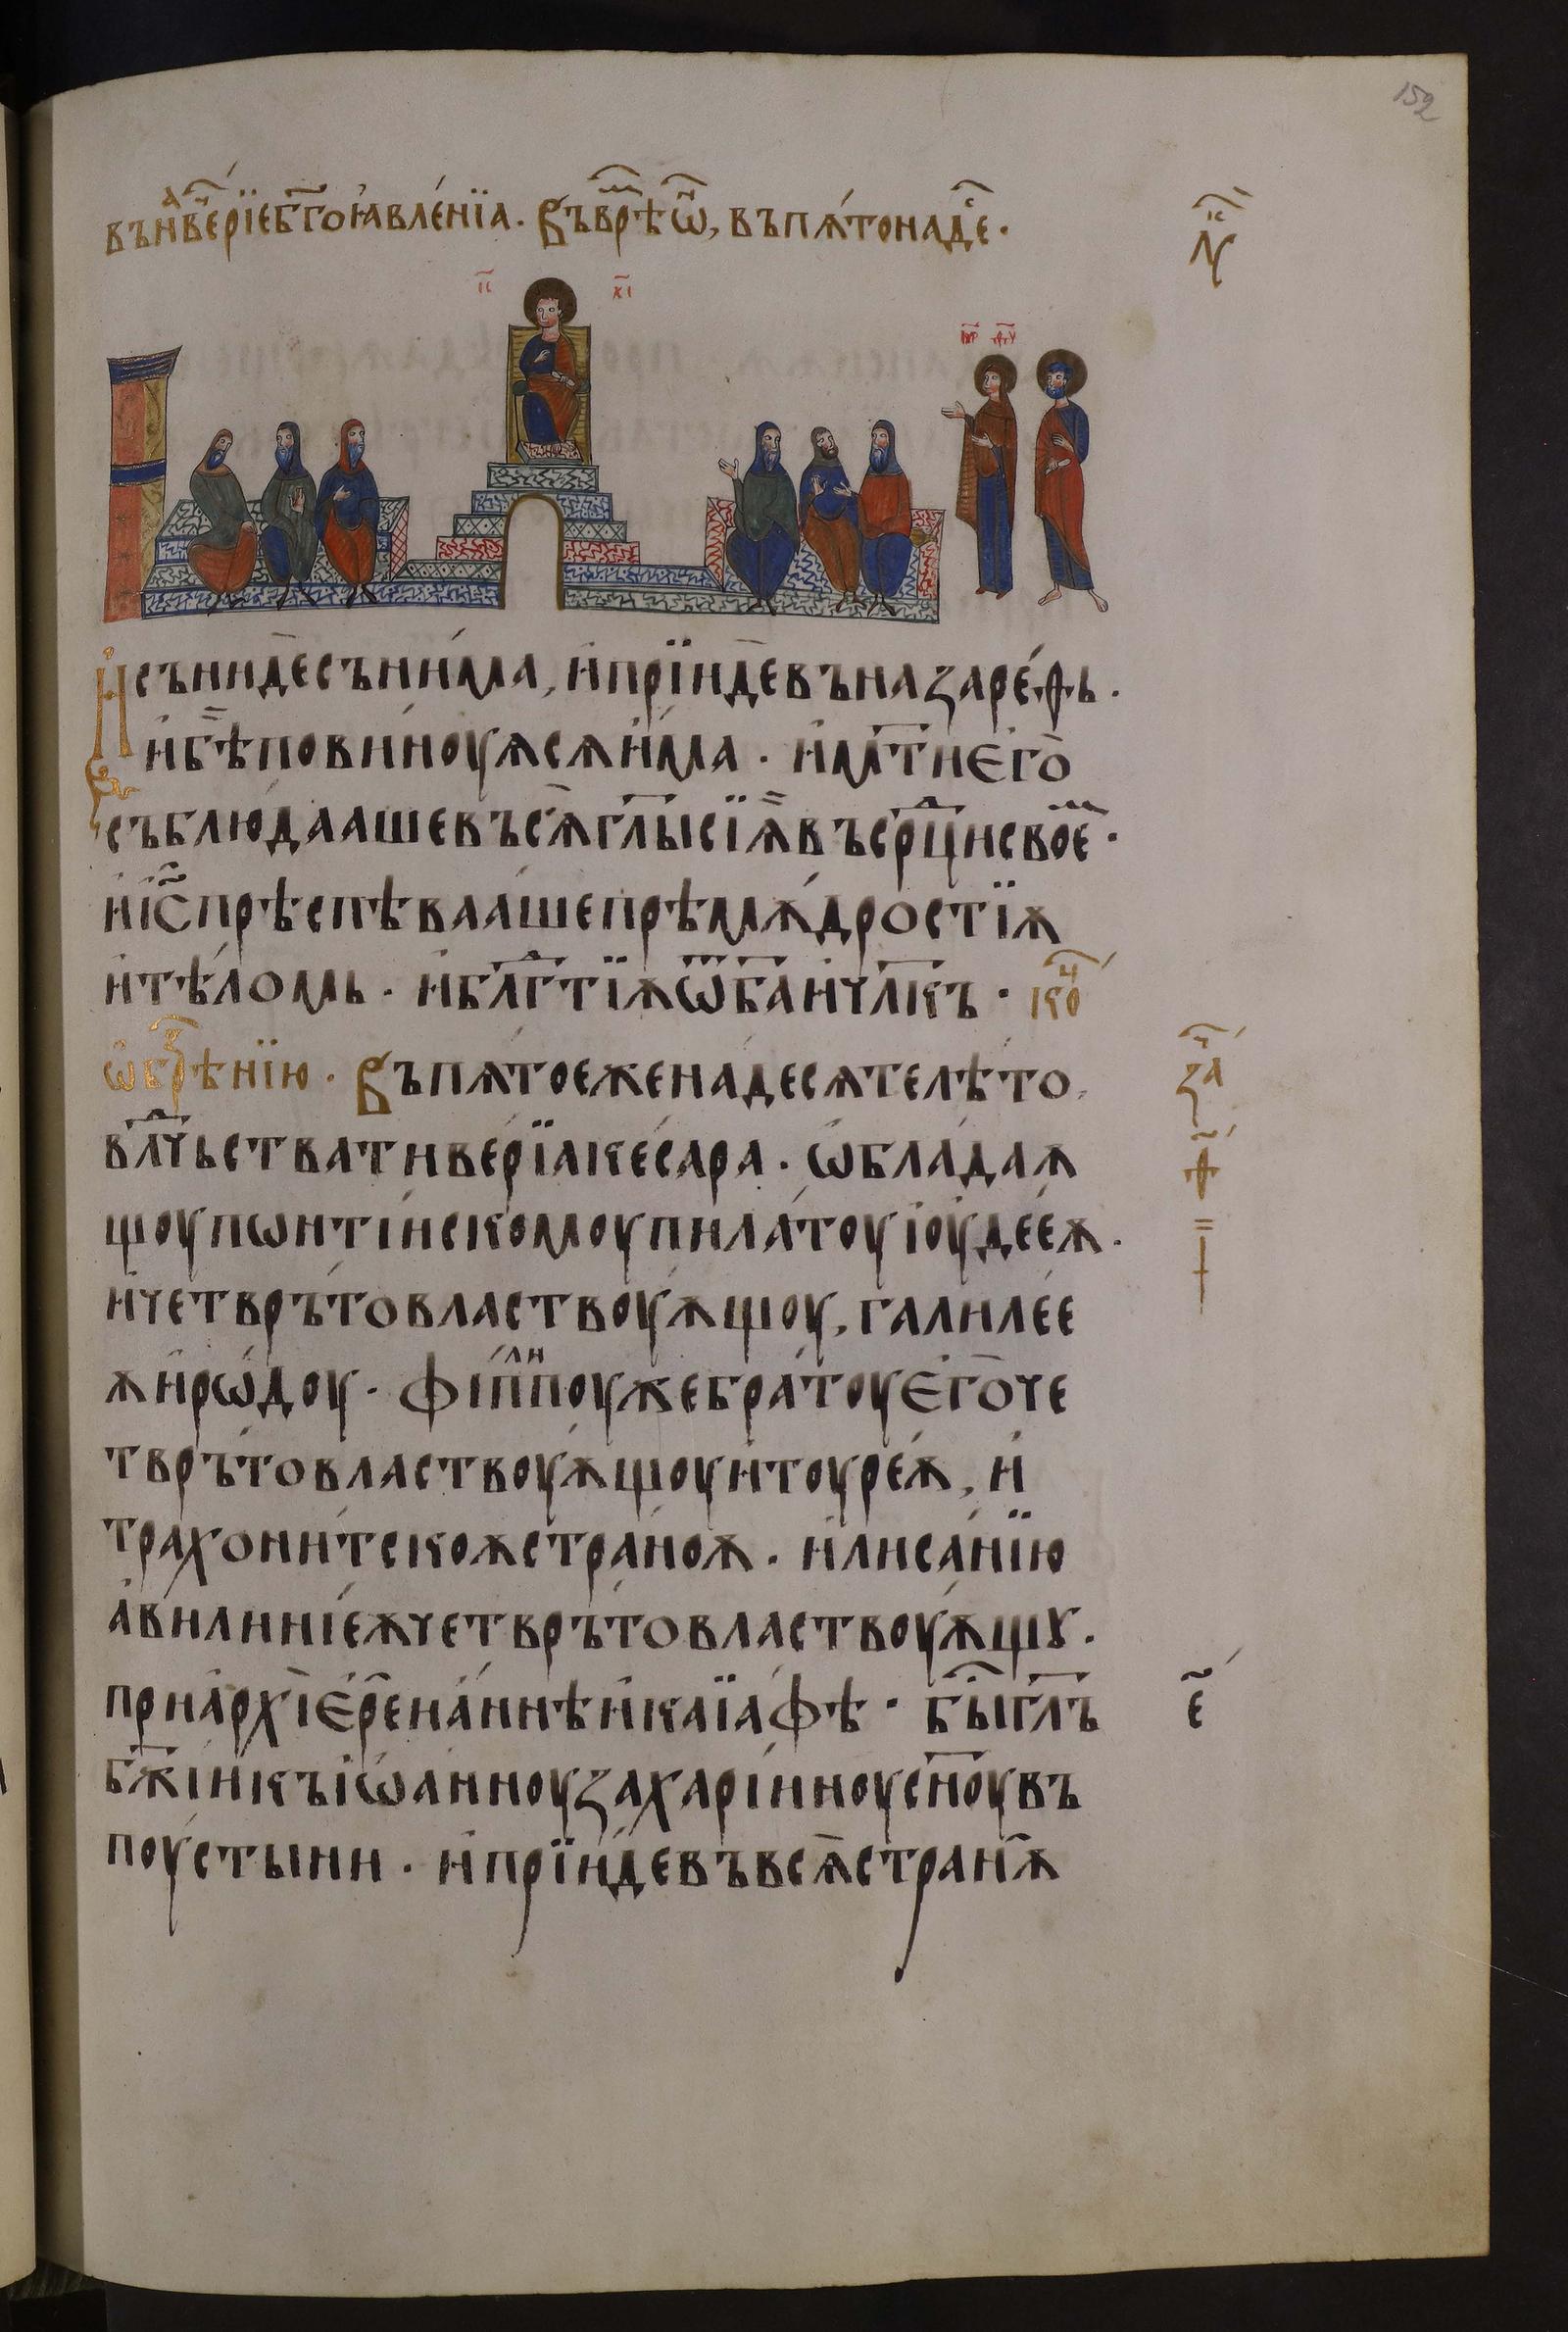 152
въ навеⷱ҇рїе б҃гоꙗвле́нїа · Въ врѣⷨ҇ ѡⷩ҇, въ пѧ́тонадеⷭ҇ ·
лꙋⷦ҇
і҃с х҃с
И съниде съ ни́ма, и҆ прїи́де въ назаре́ѳь ·
и҆ бѣ повинꙋ́ѧсѧ и҆́ма · и҆ мт҃и є҆го̀
съблюдааше въсѧ̀ гл҃ы сїѧ̀ въ срⷣци своеⷨ ·
и҆ і҆с҃ прѣспѣвааше прѣмѫ́дростїѫ
и҆ тѣ́ломь · и҆ блгⷣтїѫ ѿ б҃а и҆ чл҃къ · коⷰ҇
ѡ҆брѣⷥнїю · Въ пѧтоеженадесѧте лѣ́то,
влⷣчьства тиве́рїа ке́сара · ѡ҆бла́даѫ
заⷱ҇
ѳ҃
щоу пѡнті́искомоу пила́тоу і҆оуде́еѫ ·
и҆ четврътовластвоу́ѫщоу, галиле́е
ѫ и҆рѡ́доу · фі́липпоу же бра́тоу є҆го̀ че
твръ́товластвоу́ѫщоу и҆тоуре́ѫ, и҆
трахони́тскоѫ страно́ѫ · и҆ лиса́нїю
а҆вилиніе́ѫ четвръ́товластвоу́ѫщꙋ ·
при а҆рхїє҆ре́и а́ннѣ и҆ каїа́фѣ · быⷭ҇ гл҃ъ
е҃
бж҃іи къ і҆ѡа́нноу заха́рінноу сн҃оу въ
поу́стыни · и҆ прїи́де въ всѧ̀ страны̀